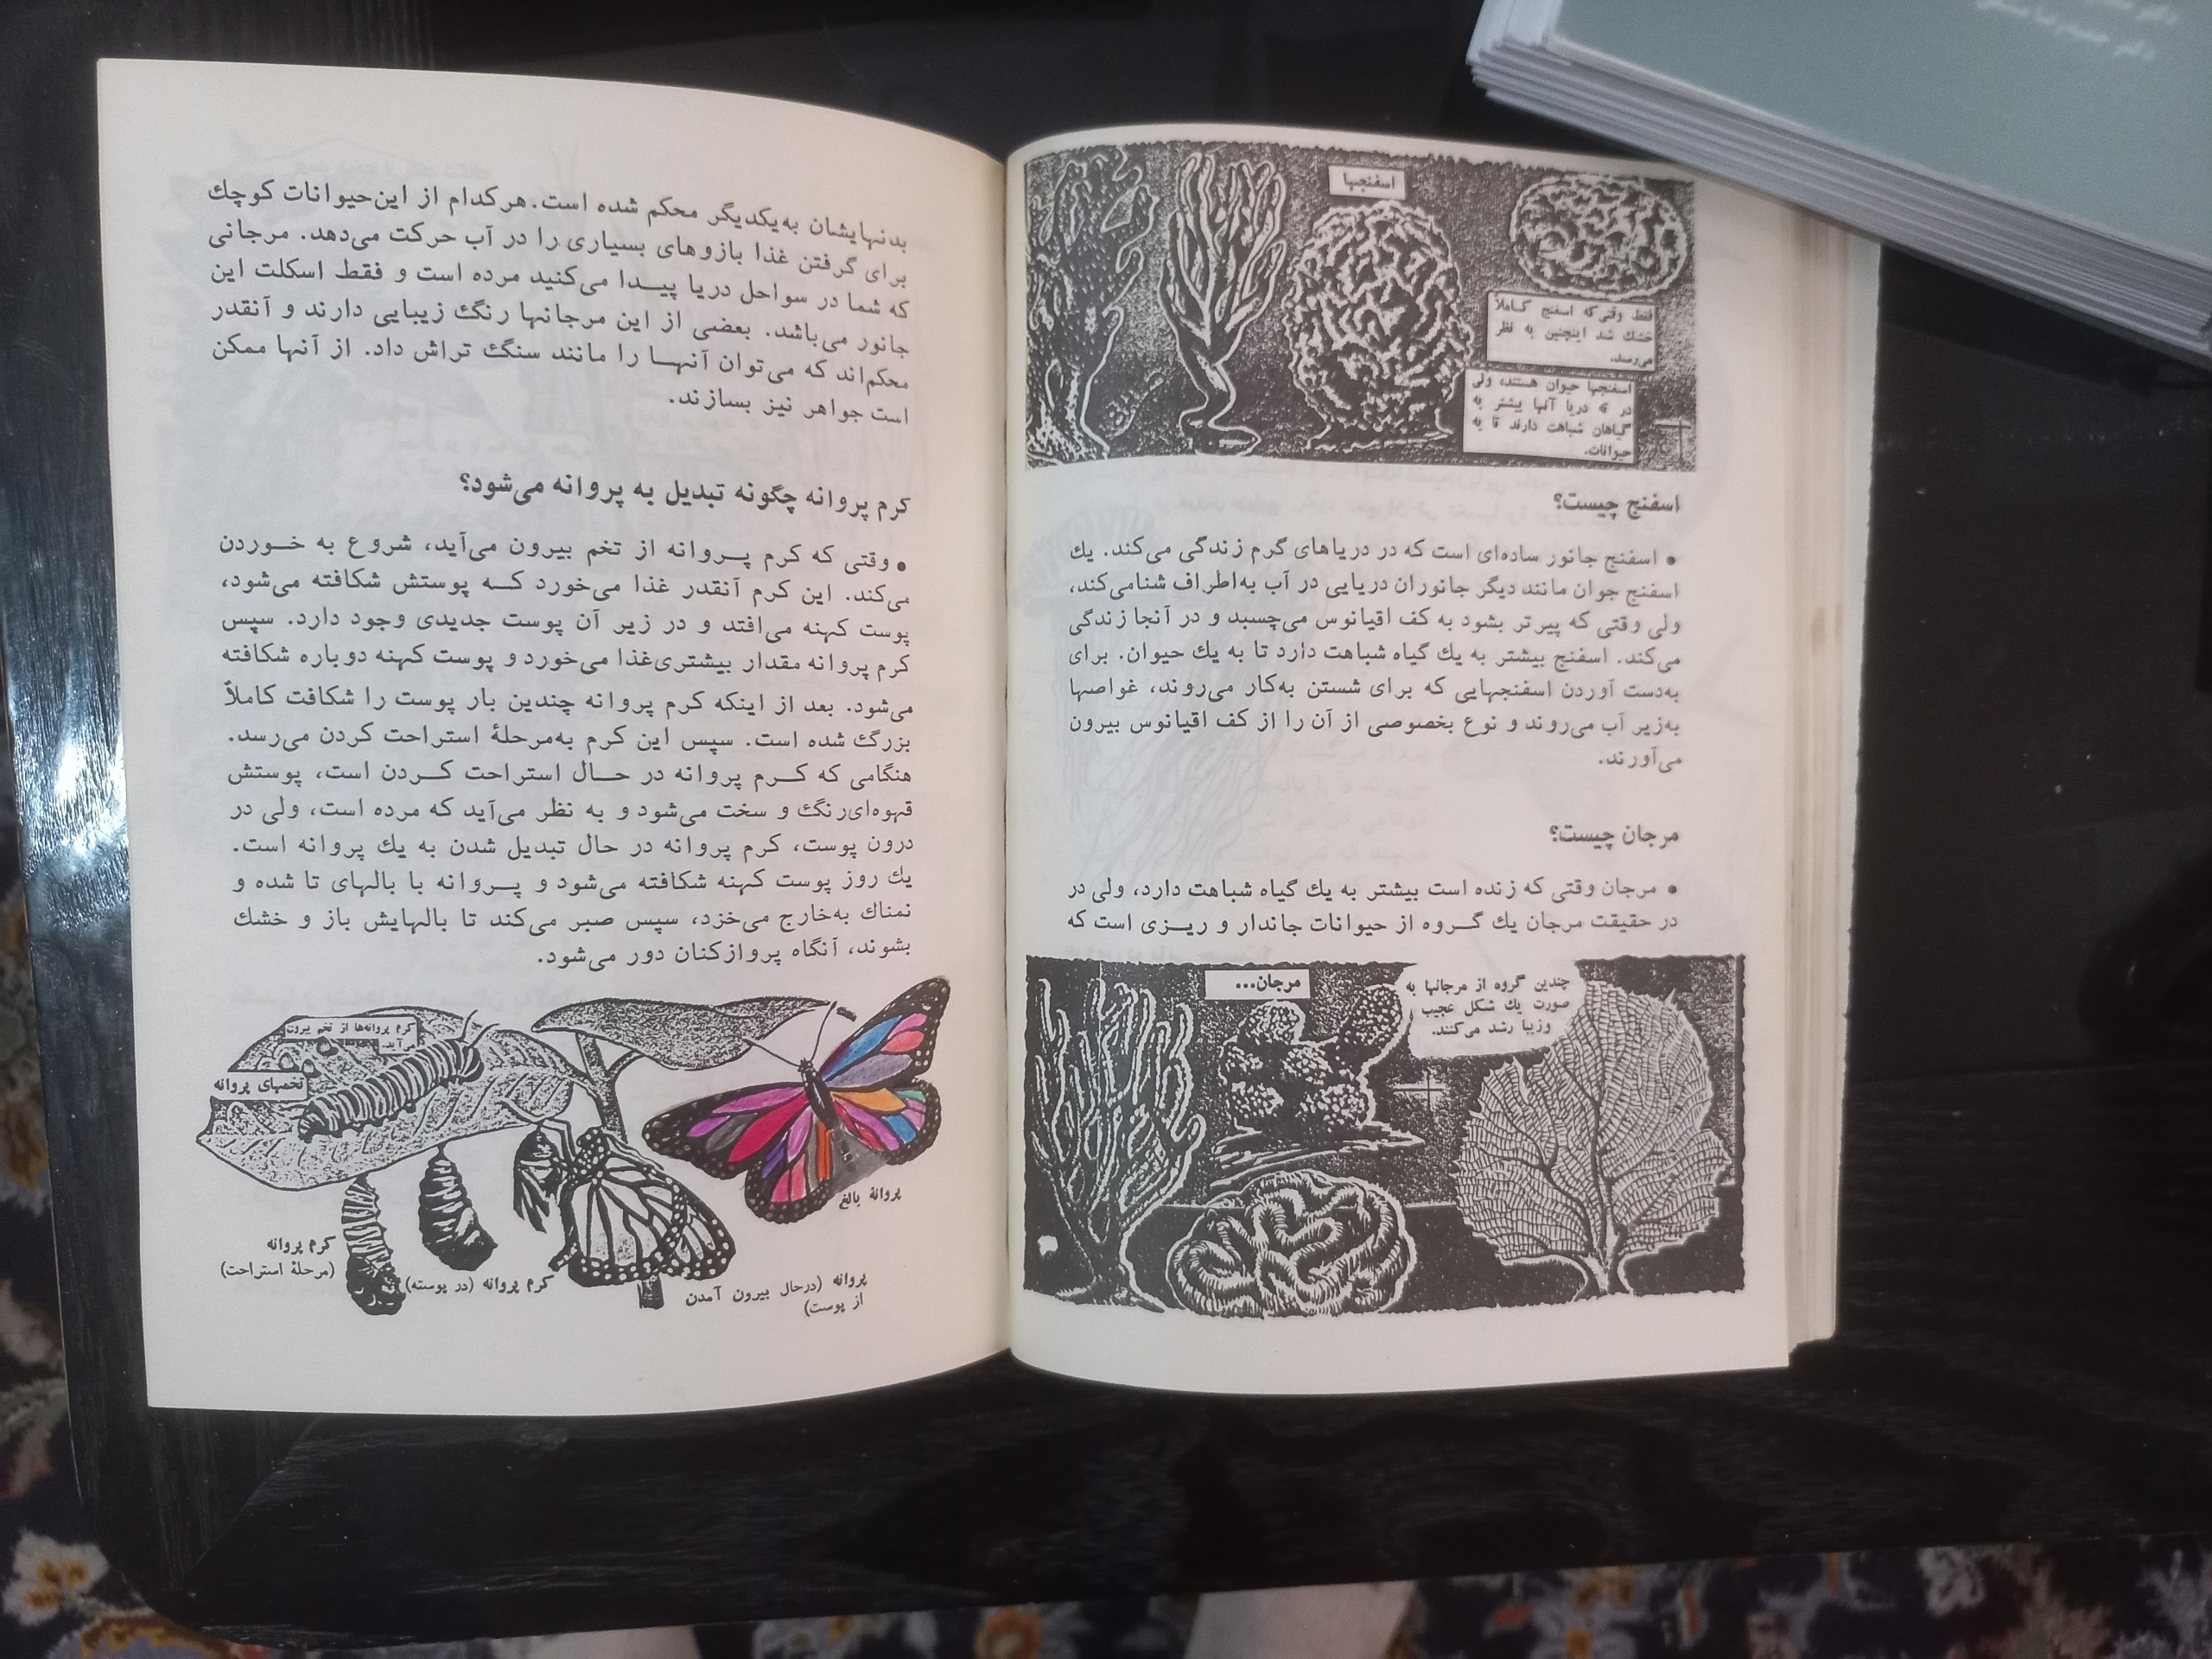 اسفنجها
فقط وقتی‌که اسفنج کاملاً
خشك شد اینچنین به نظر
می‌رسد.
اسفنجها حیوان هستند، ولی
در ته دریا آنها بیشتر به
گیاهان شباهت دارند تا به
حیوانات.
اسفنج چیست؟
• اسفنج جانور ساده‌ای است که در دریاهای گرم زندگی می‌کند. یك
اسفنج جوان مانند دیگر جانوران دریایی در آب به‌اطراف شنامی‌کند،
ولی وقتی که پیرتر بشود به کف اقیانوس می‌چسبد و در آنجا زندگی
می‌کند. اسفنج بیشتر به یك گیاه شباهت دارد تا به یك حیوان. برای
به‌دست آوردن اسفنجهایی که برای شستن به‌کار می‌روند، غواصها
به‌زیر آب می‌روند و نوع بخصوصی از آن را از کف اقیانوس بیرون
می‌آورند.
مرجان چیست؟
• مرجان وقتی که زنده است بیشتر به یك گیاه شباهت دارد، ولی در
در حقیقت مرجان یك گروه از حیوانات جاندار و ریزی است که
مرجان...
چندین گروه از مرجانها به
صورت یك شکل عجیب
وزیبا رشد می‌کنند.
بدنهایشان به‌یکدیگر محکم شده است. هرکدام از این‌حیوانات کوچك
برای گرفتن غذا بازوهای بسیاری را در آب حرکت می‌دهد. مرجانی
که شما در سواحل دریا پیدا می‌کنید مرده است و فقط اسکلت این
جانور می‌باشد. بعضی از این مرجانها رنگ زیبایی دارند و آنقدر
محکم‌اند که می‌توان آنها را مانند سنگ تراش داد. از آنها ممکن
است جواهر نیز بسازند.
کرم پروانه چگونه تبدیل به پروانه می‌شود؟
• وقتی که کرم پروانه از تخم بیرون می‌آید، شروع به خوردن
می‌کند. این کرم آنقدر غذا می‌خورد که پوستش شکافته می‌شود،
پوست کهنه می‌افتد و در زیر آن پوست جدیدی وجود دارد. سپس
کرم پروانه مقدار بیشتری‌غذا می‌خورد و پوست کهنه دوباره شکافته
می‌شود. بعد از اینکه کرم پروانه چندین بار پوست را شکافت کاملاً
بزرگ شده است. سپس این کرم به‌مرحلهٔ استراحت کردن می‌رسد.
هنگامی که کرم پروانه در حال استراحت کردن است، پوستش
قهوه‌ای‌رنگ و سخت می‌شود و به نظر می‌آید که مرده است، ولی در
درون پوست، کرم پروانه در حال تبدیل شدن به یك پروانه است.
یك روز پوست کهنه شکافته می‌شود و پروانه با بالهای تا شده و
نمناك به‌خارج می‌خزد، سپس صبر می‌کند تا بالهایش باز و خشك
بشوند، آنگاه پروازکنان دور می‌شود.
کرم پروانه‌ها از تخم بیرون
می‌آید.
تخمهای پروانه
پروانهٔ بالغ
کرم پروانه
(مرحلهٔ استراحت)
کرم پروانه (در پوسته)
پروانه (درحال بیرون آمدن
از پوست)